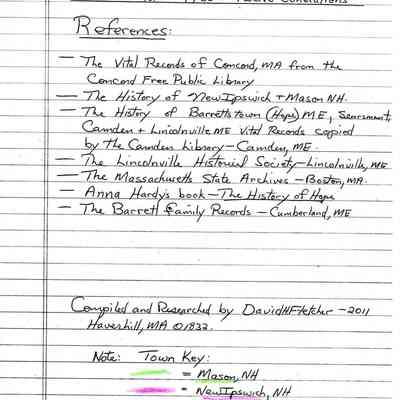 Twelve Generations
References:
— The Vital Records of Concord, MA from the
Concord Free Public Library
— The History of New Ipswich + Mason NH.
— The History of Barrettstown (Hope) ME, Searsmont,
Camden + Lincolnville ME Vital Records copied
by the Camden Library - Camden, ME.
— The Lincolnville Historical Society - Lincolnville, ME
— The Massachusetts State Archives - Boston, MA.
— Anna Hardy's book - The History of Hope
— The Barrett Family Records - Cumberland, ME
Compiled and Researched by David H Fletcher - 2011
Haverhill, MA 01832.
Note: Town Key:
= Mason, NH
= New Ipswich, NH